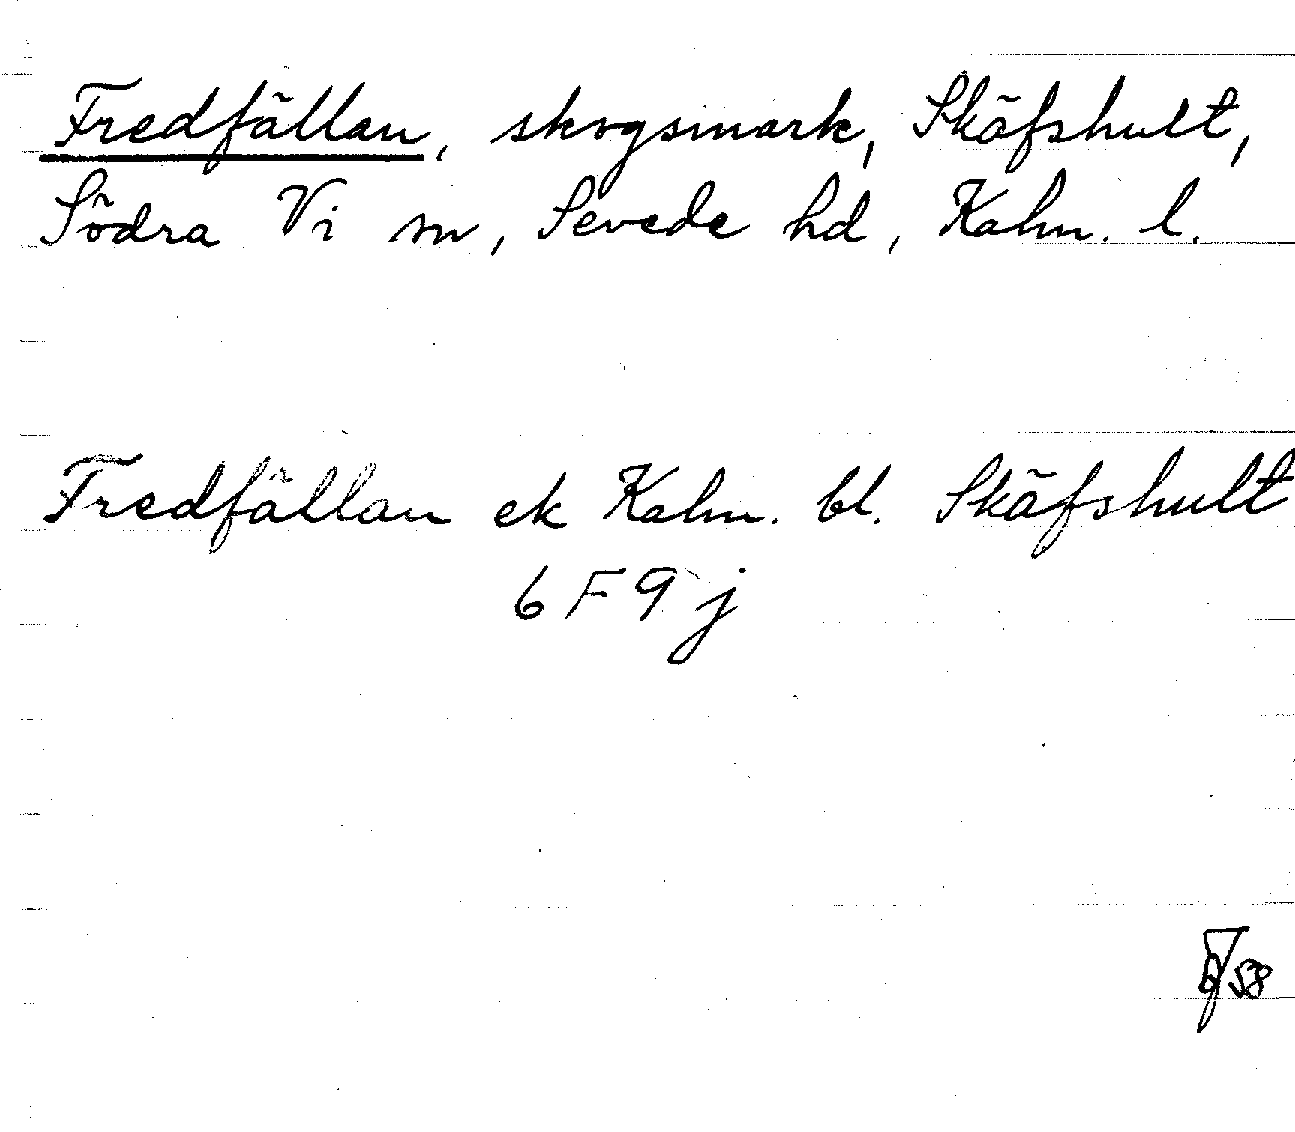 Fredfällan, skogsmark, Skäfshult,
Södra Vi sn, Sevede hd, Kalm. l.
Fredfällan ek Kalm. bl. Skäfshult
6 F 9 j
58